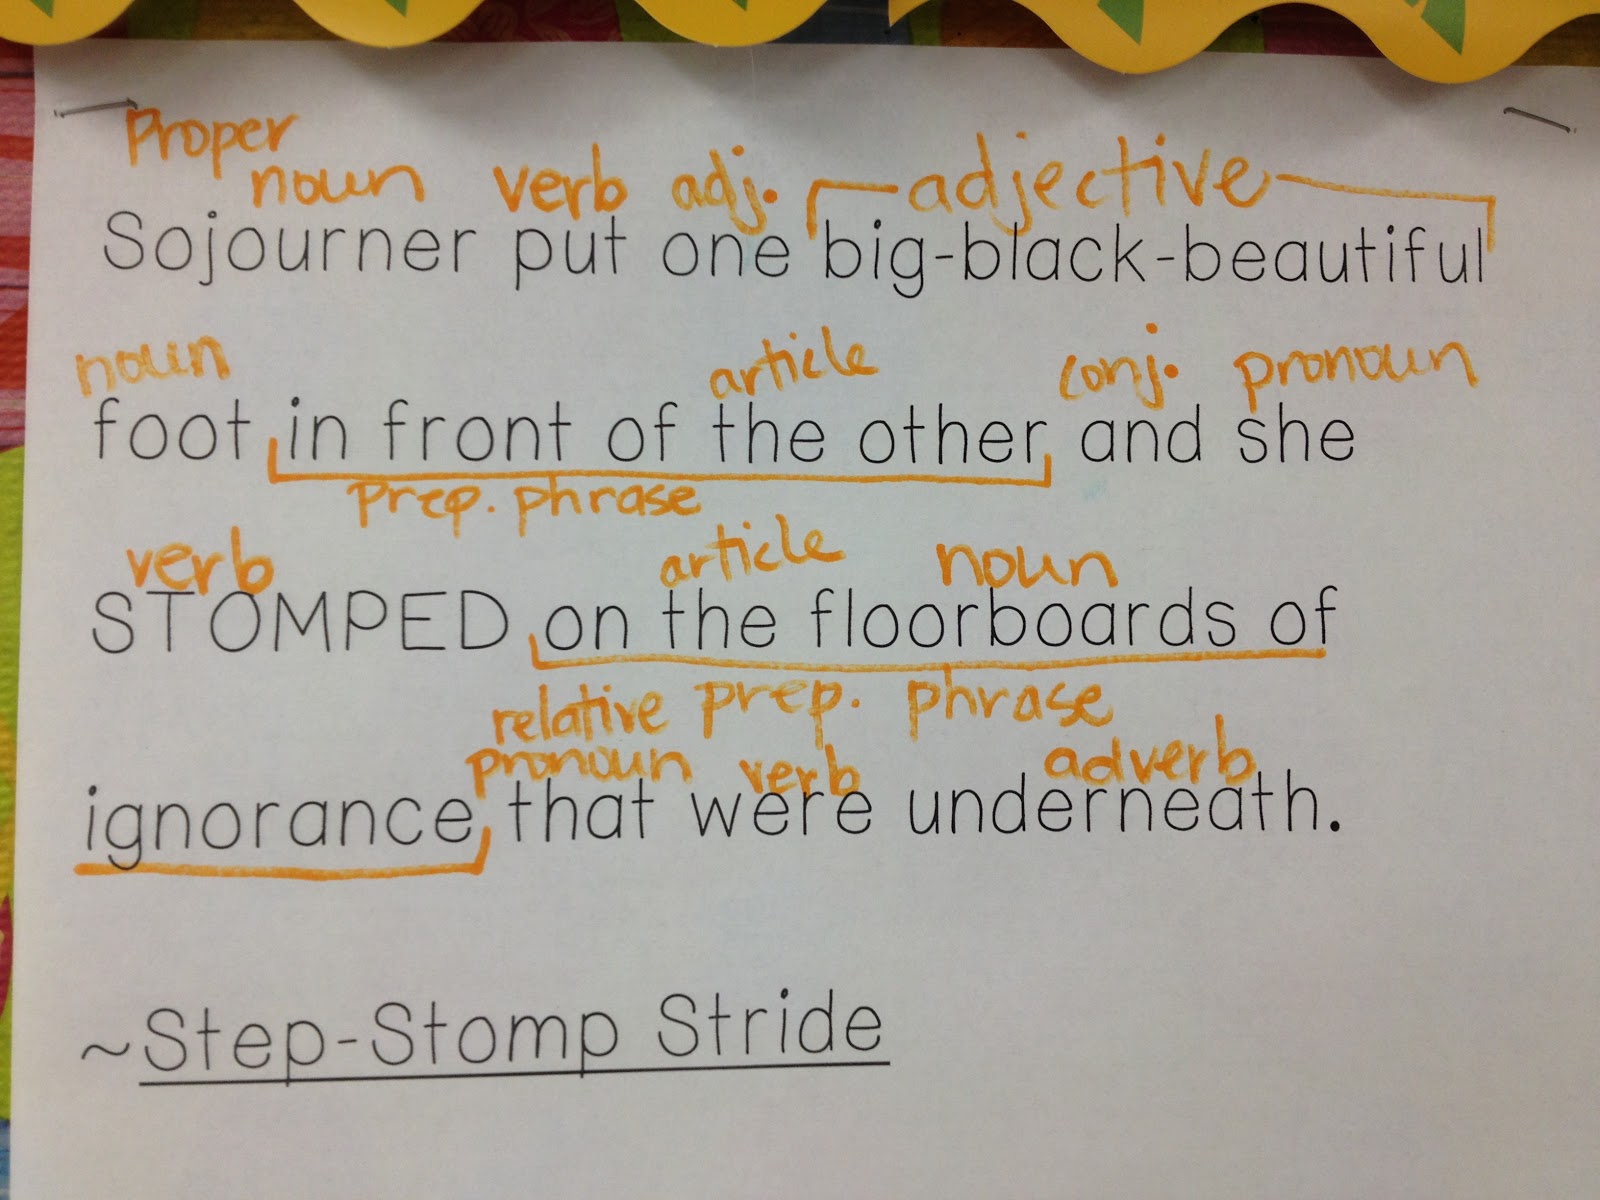 Proper
noun verb adj. adjective
Sojourner put one big-black-beautiful
noun article conj. pronoun
foot in front of the other and she
prep. phrase
verb article noun
STOMPED on the floorboards of
relative prep. phrase
pronoun verb adverb
ignorance that were underneath.
~Step-Stomp Stride